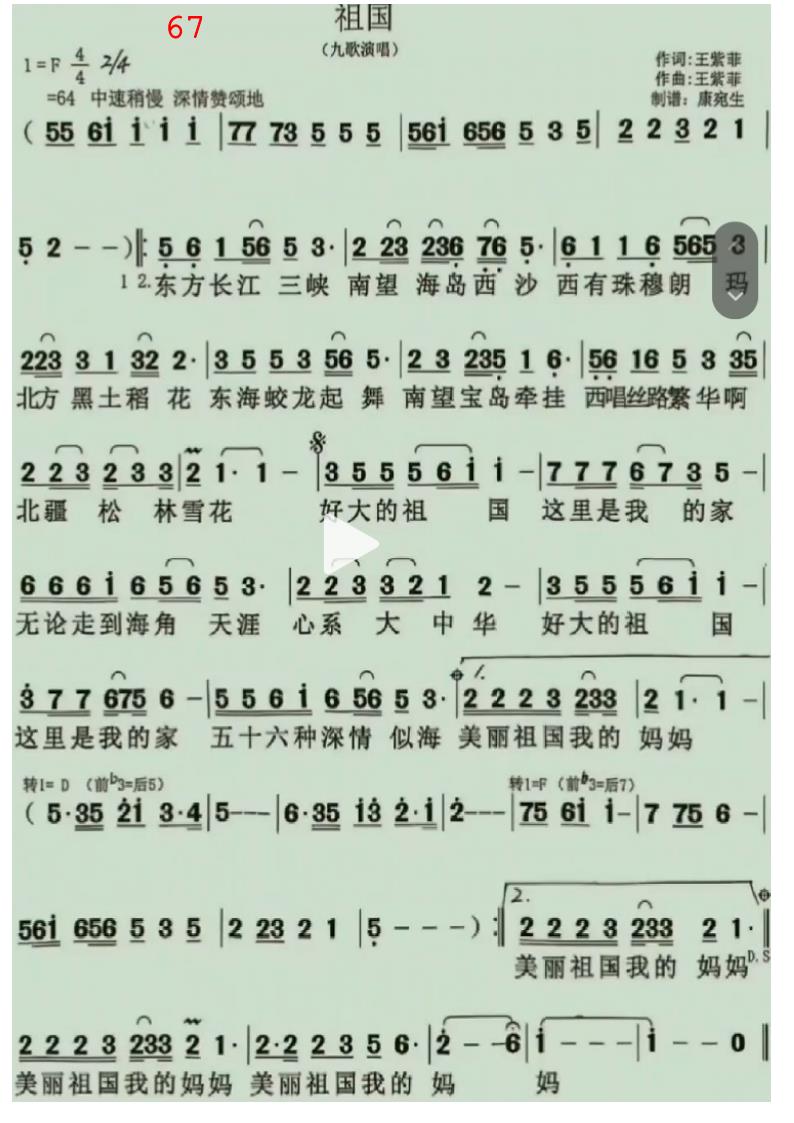 67
祖国
（九歌演唱）
1=F 4/4 2/4
作词:王紫菲
作曲:王紫菲
=64 中速稍慢 深情赞颂地
制谱：康宛生
( 55 61 1 1 1 | 77 73 5 5 5 | 561 656 5 3 5 | 2 2 3 2 1 |
5 2 - - )‖: 5 6 1 56 5 3· | 2 23 236 76 5· | 6 1 1 6 565 3 |
1 2.东方长江 三峡 南望 海岛西 沙 西有珠穆朗 玛
223 3 1 32 2· | 3 5 5 3 56 5· | 2 3 235 1 6· | 56 16 5 3 35 |
北方 黑土稻 花 东海蛟龙起 舞 南望宝岛牵挂 西唱丝路繁华啊
2 2 3 2 3 3 | 2 1· 1 - | 3 5 5 5 6 1 1 - | 7 7 7 6 7 3 5 - |
北疆 松 林雪花 好大的祖 国 这里是我 的家
6 6 6 1 6 5 6 5 3· | 2 2 3 3 2 1 2 - | 3 5 5 5 6 1 1 - |
无论走到海角 天涯 心系 大 中 华 好大的祖 国
3 7 7 675 6 - | 5 5 6 1 6 56 5 3· | 1. 2 2 2 3 233 | 2 1· 1 - |
这里是我的家 五十六种深情 似海 美丽祖国我的 妈妈
转1= D （前b3=后5） 转1=F（前b3=后7）
( 5·35 21 3·4 | 5--- | 6·35 13 2·1 | 2--- | 75 61 1- | 7 75 6 - |
561 656 5 3 5 | 2 23 2 1 | 5 - - - ) :‖ 2. 2 2 2 3 233 2 1· ‖
美丽祖国我的 妈妈 D.S
2 2 2 3 233 2 1· | 2·2 2 3 5 6· | 2 - - 6 | 1 - - - | 1 - - 0 ‖
美丽祖国我的妈妈 美丽祖国我的 妈 妈